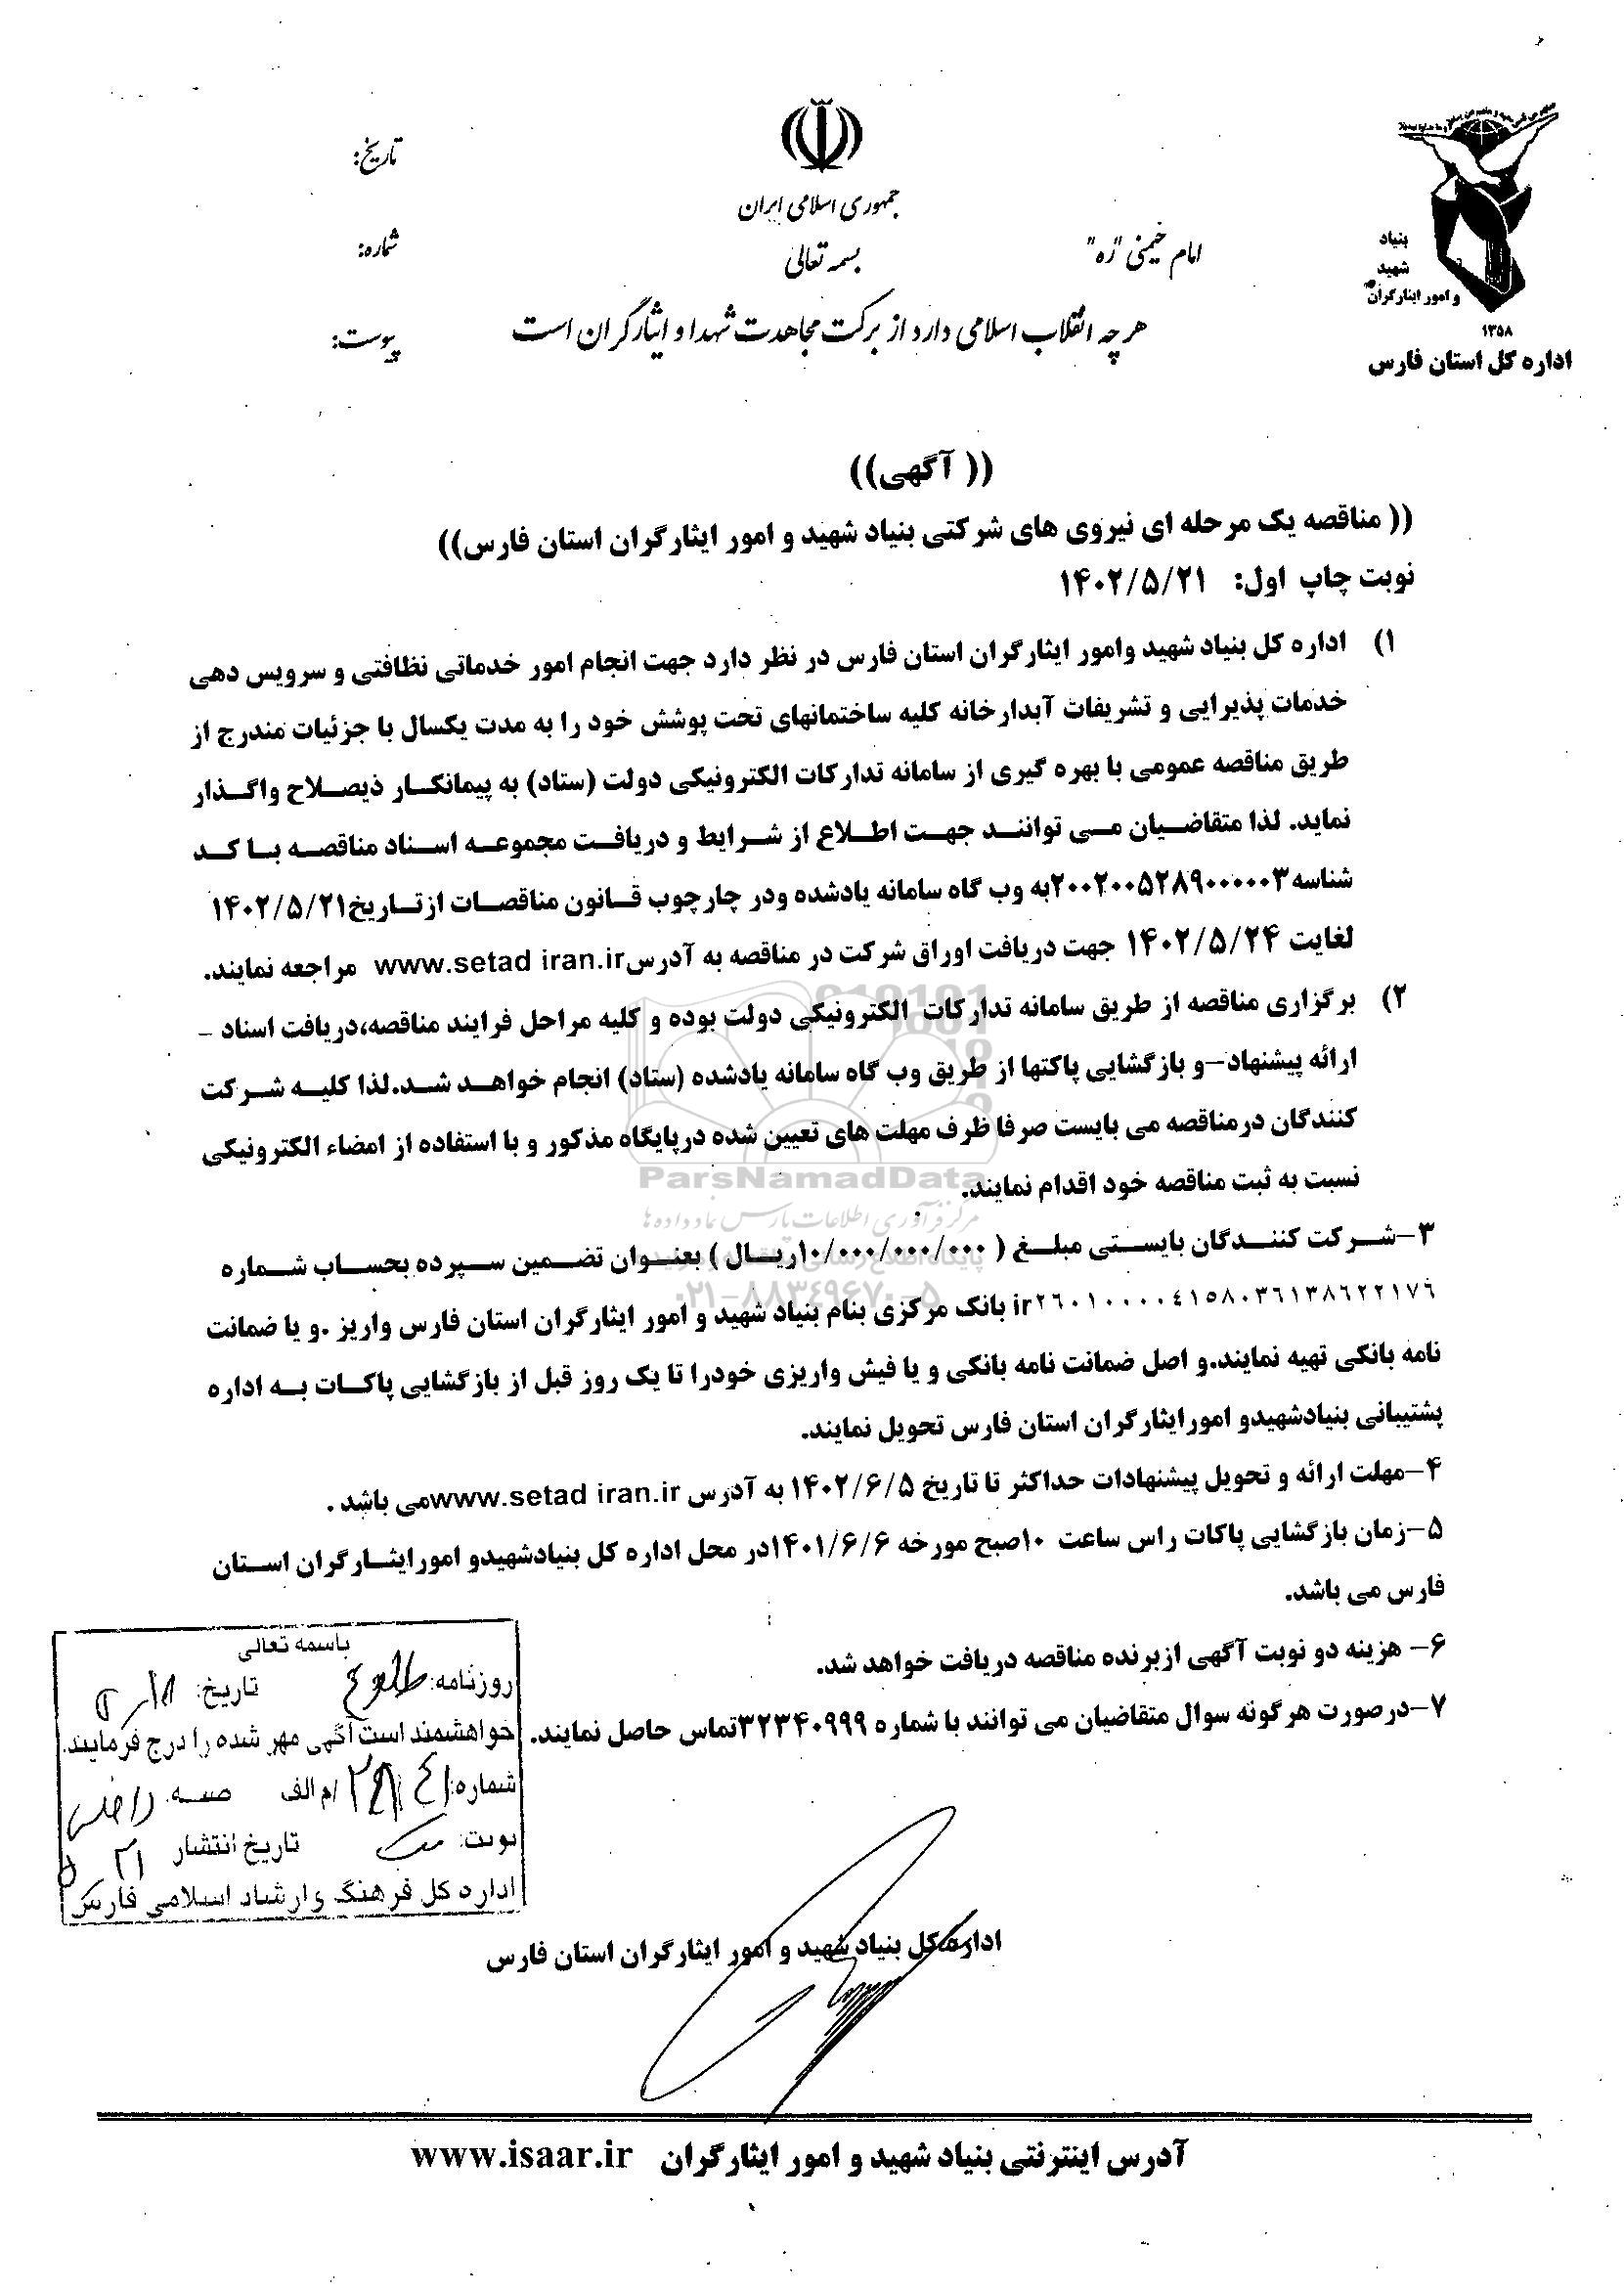 بنیاد
شهید
و امور ایثارگران
۱۳۵۸
اداره کل استان فارس
جمهوری اسلامی ایران
بسمه تعالی
امام خمینی "ره"
هر چه انقلاب اسلامی دارد از برکت مجاهدت شهدا و ایثارگران است
تاریخ:
شماره:
پیوست:
(( آگهی))
(( مناقصه یک مرحله ای نیروی های شرکتی بنیاد شهید و امور ایثارگران استان فارس))
نوبت چاپ اول: ۱۴۰۲/۵/۲۱
۱) اداره کل بنیاد شهید وامور ایثارگران استان فارس در نظر دارد جهت انجام امور خدماتی نظافتی و سرویس دهی
خدمات پذیرایی و تشریفات آبدارخانه کلیه ساختمانهای تحت پوشش خود را به مدت یکسال با جزئیات مندرج از
طریق مناقصه عمومی با بهره گیری از سامانه تدارکات الکترونیکی دولت (ستاد) به پیمانکار ذیصلاح واگذار
نماید. لذا متقاضیان می توانند جهت اطلاع از شرایط و دریافت مجموعه اسناد مناقصه با کد
شناسه ۲۰۰۲۰۰۵۲۸۹۰۰۰۰۰۳به وب گاه سامانه یادشده ودر چارچوب قانون مناقصات ازتاریخ۱۴۰۲/۵/۲۱
لغایت ۱۴۰۲/۵/۲۴ جهت دریافت اوراق شرکت در مناقصه به آدرسwww.setad iran.ir مراجعه نمایند.
۲) برگزاری مناقصه از طریق سامانه تدارکات الکترونیکی دولت بوده و کلیه مراحل فرایند مناقصه،دریافت اسناد –
ارائه پیشنهاد–و بازگشایی پاکتها از طریق وب گاه سامانه یادشده (ستاد) انجام خواهد شد.لذا کلیه شرکت
کنندگان درمناقصه می بایست صرفا ظرف مهلت های تعیین شده درپایگاه مذکور و با استفاده از امضاء الکترونیکی
نسبت به ثبت مناقصه خود اقدام نمایند.
ParsNamadData
مرکز فرآوری اطلاعات پارس نماد داده ها
۳–شرکت کنندگان بایستی مبلغ ( ۱۰/۰۰۰/۰۰۰/۰۰۰ریال ) بعنوان تضمین سپرده بحساب شماره
۰۲۱–۸۸۳۴۹۶۷۰–۵
ir۲۶۰۱۰۰۰۰۴۱۵۸۰۳۶۱۳۸۶۲۲۱۷۹ بانک مرکزی بنام بنیاد شهید و امور ایثارگران استان فارس واریز .و یا ضمانت
نامه بانکی تهیه نمایند.و اصل ضمانت نامه بانکی و یا فیش واریزی خودرا تا یک روز قبل از بازگشایی پاکات به اداره
پشتیبانی بنیادشهیدو امورایثارگران استان فارس تحویل نمایند.
۴–مهلت ارائه و تحویل پیشنهادات حداکثر تا تاریخ ۱۴۰۲/۶/۵ به آدرس www.setad iran.irمی باشد .
۵–زمان بازگشایی پاکات راس ساعت ۱۰صبح مورخه ۱۴۰۱/۶/۶در محل اداره کل بنیادشهیدو امورایثارگران استان
فارس می باشد.
۶– هزینه دو نوبت آگهی ازبرنده مناقصه دریافت خواهد شد.
۷–درصورت هرگونه سوال متقاضیان می توانند با شماره ۳۲۳۴۰۹۹۹تماس حاصل نمایند.
باسمه تعالی
روزنامه: طلوع تاریخ:
خواهشمند است آگهی مهر شده را درج فرمایید.
شماره: /م الف
نوبت: تاریخ انتشار ۲۱
اداره کل فرهنگ و ارشاد اسلامی فارس
اداره کل بنیاد شهید و امور ایثارگران استان فارس
آدرس اینترنتی بنیاد شهید و امور ایثارگران www.isaar.ir